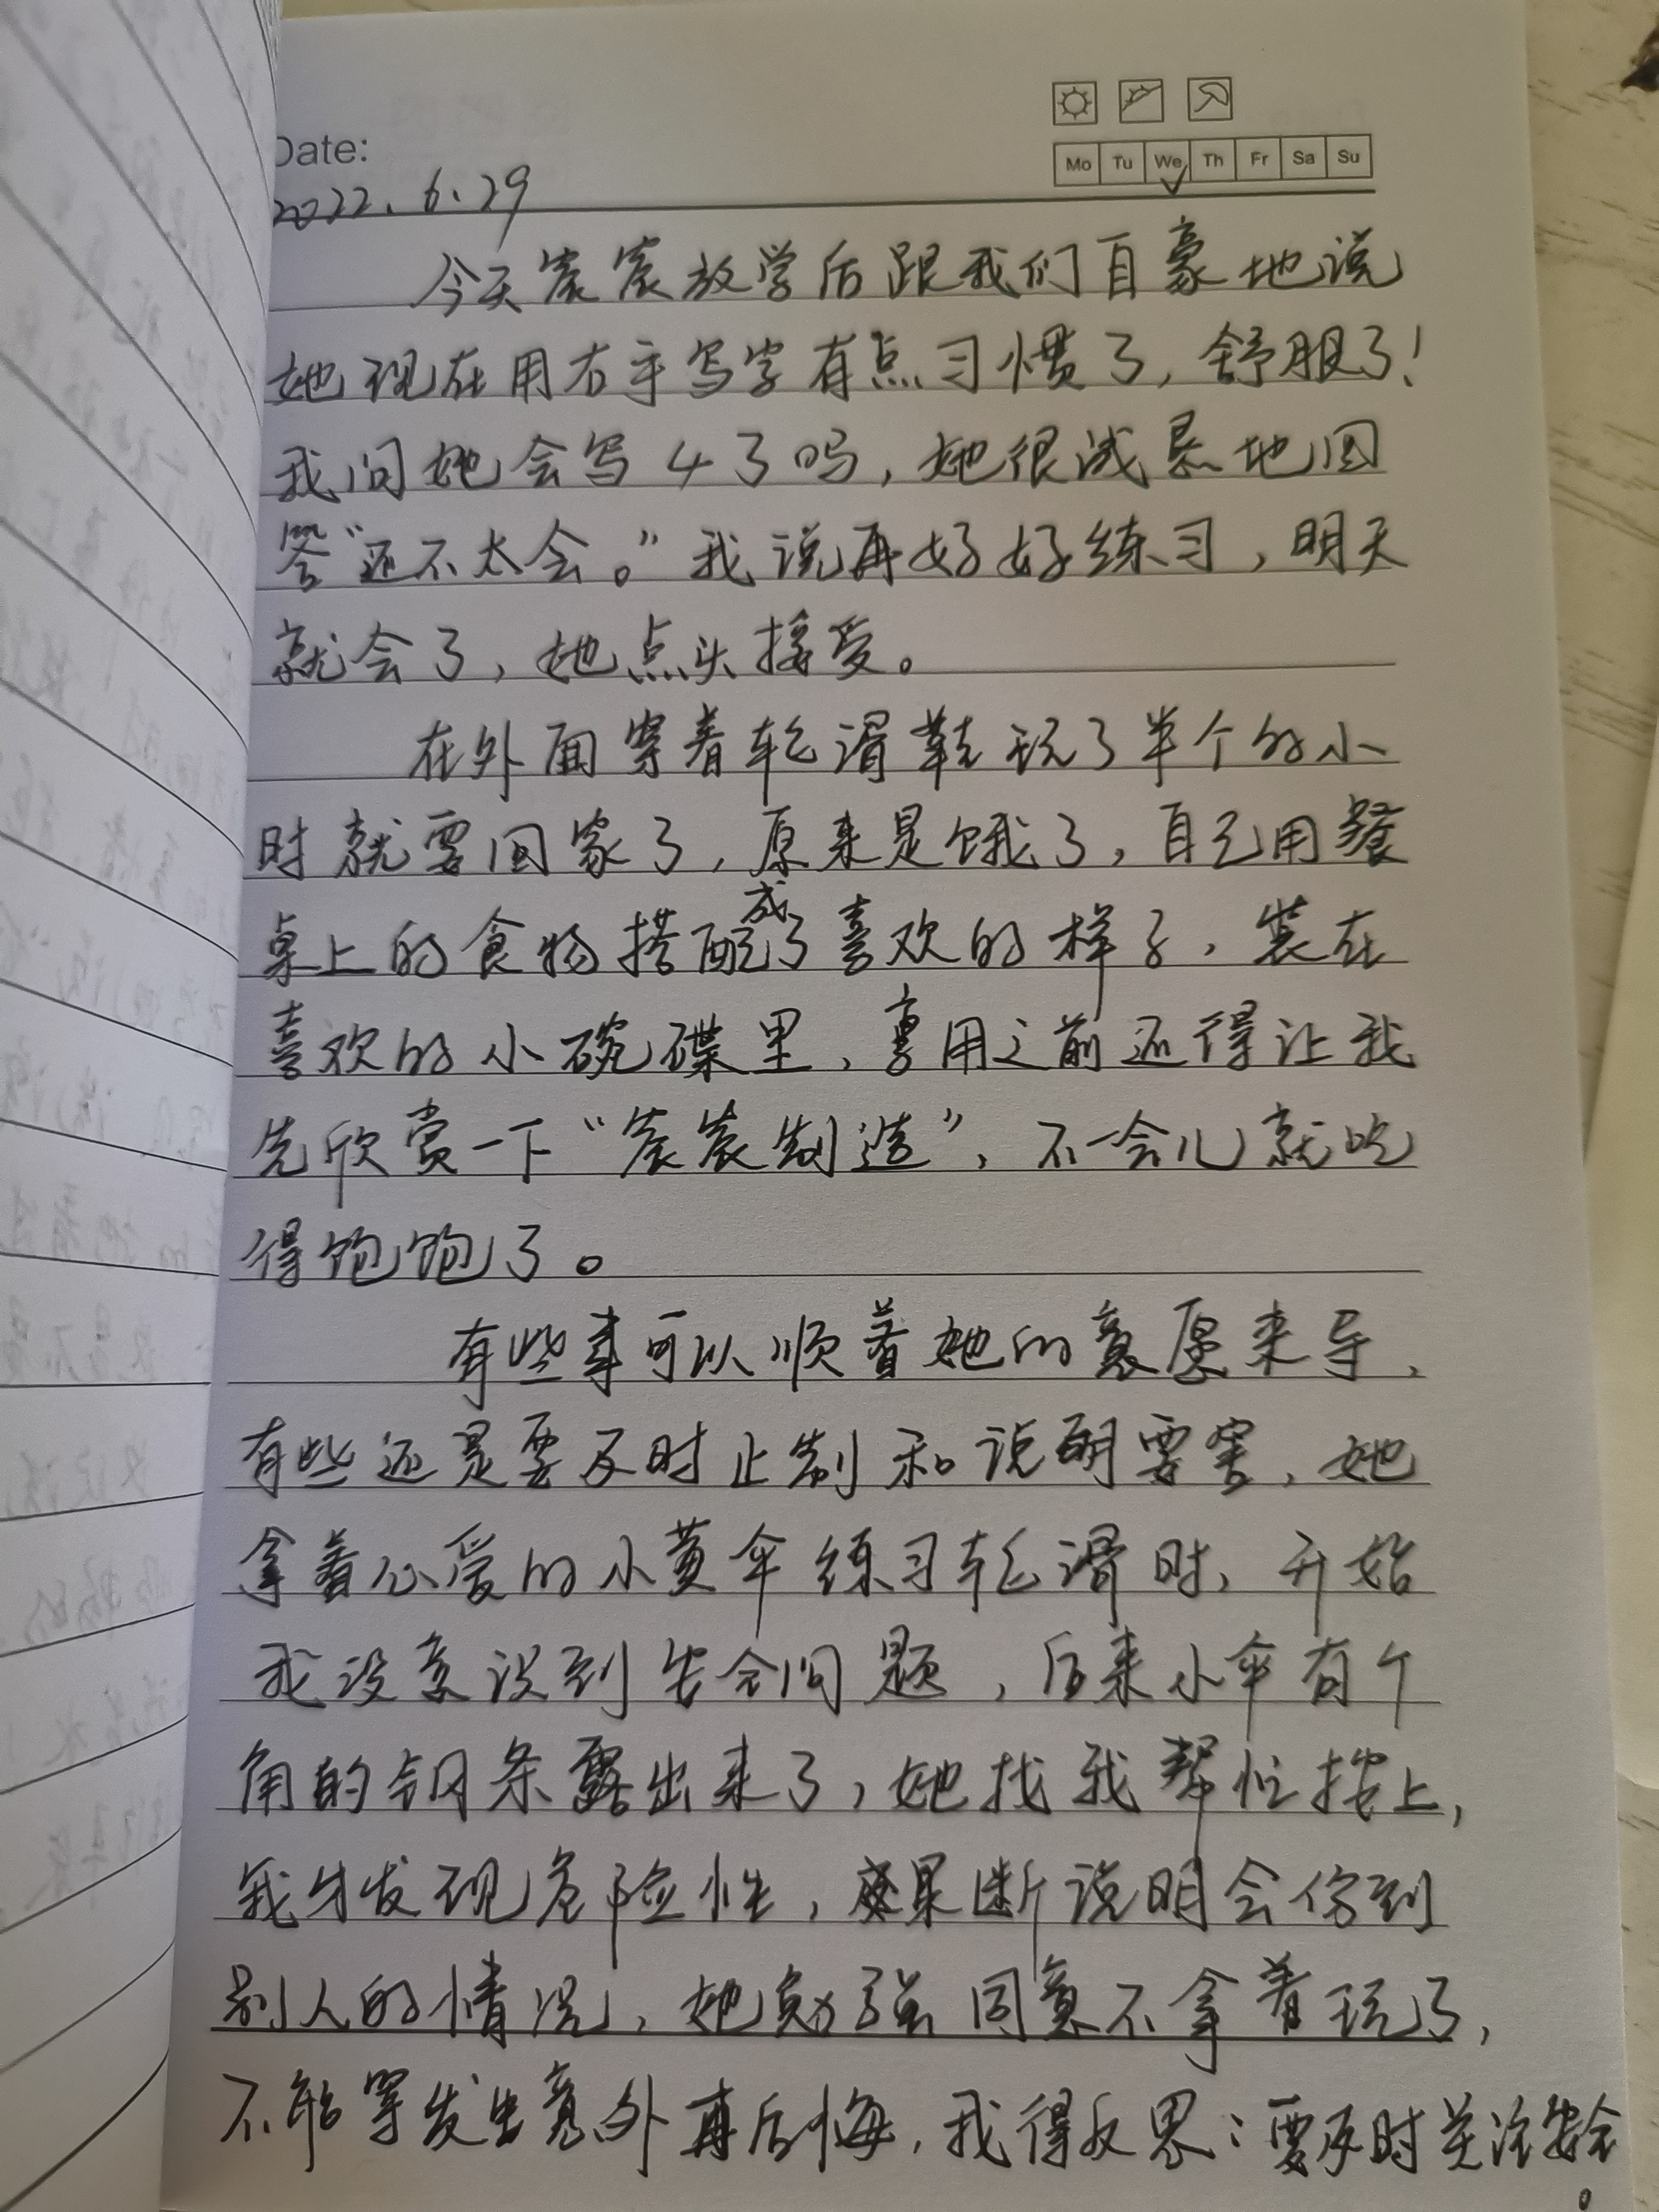 Date:
Mo Tu We Th Fr Sa Su
2022.6.29
今天宸宸放学后跟我们自豪地说
她现在用右手写字有点习惯了,舒服了!
我问她会写4了吗,她很诚恳地回
答“还不太会。”我说再好好练习,明天
就会了,她点头接受。
在外面穿着轮滑鞋玩了半个的小
时就要回家了,原来是饿了,自己用餐
桌上的食物搭配成了喜欢的样子,装在
喜欢的小碗碟里,享用之前还得让我
先欣赏一下“宸宸制造”,不一会儿就吃
得饱饱了。
有些事可以顺着她的意愿来导,
有些还是要及时止制和说明要害,她
拿着心爱的小黄伞练习轮滑时,开始
我没意识到安全问题,后来小伞有个
角的钢条露出来了,她找我帮忙按上,
我才发现危险性,果断说明会伤到
别人的情况,她勉强同意不拿着玩了,
不能等发生意外再后悔,我得反思:要及时关注安全
。